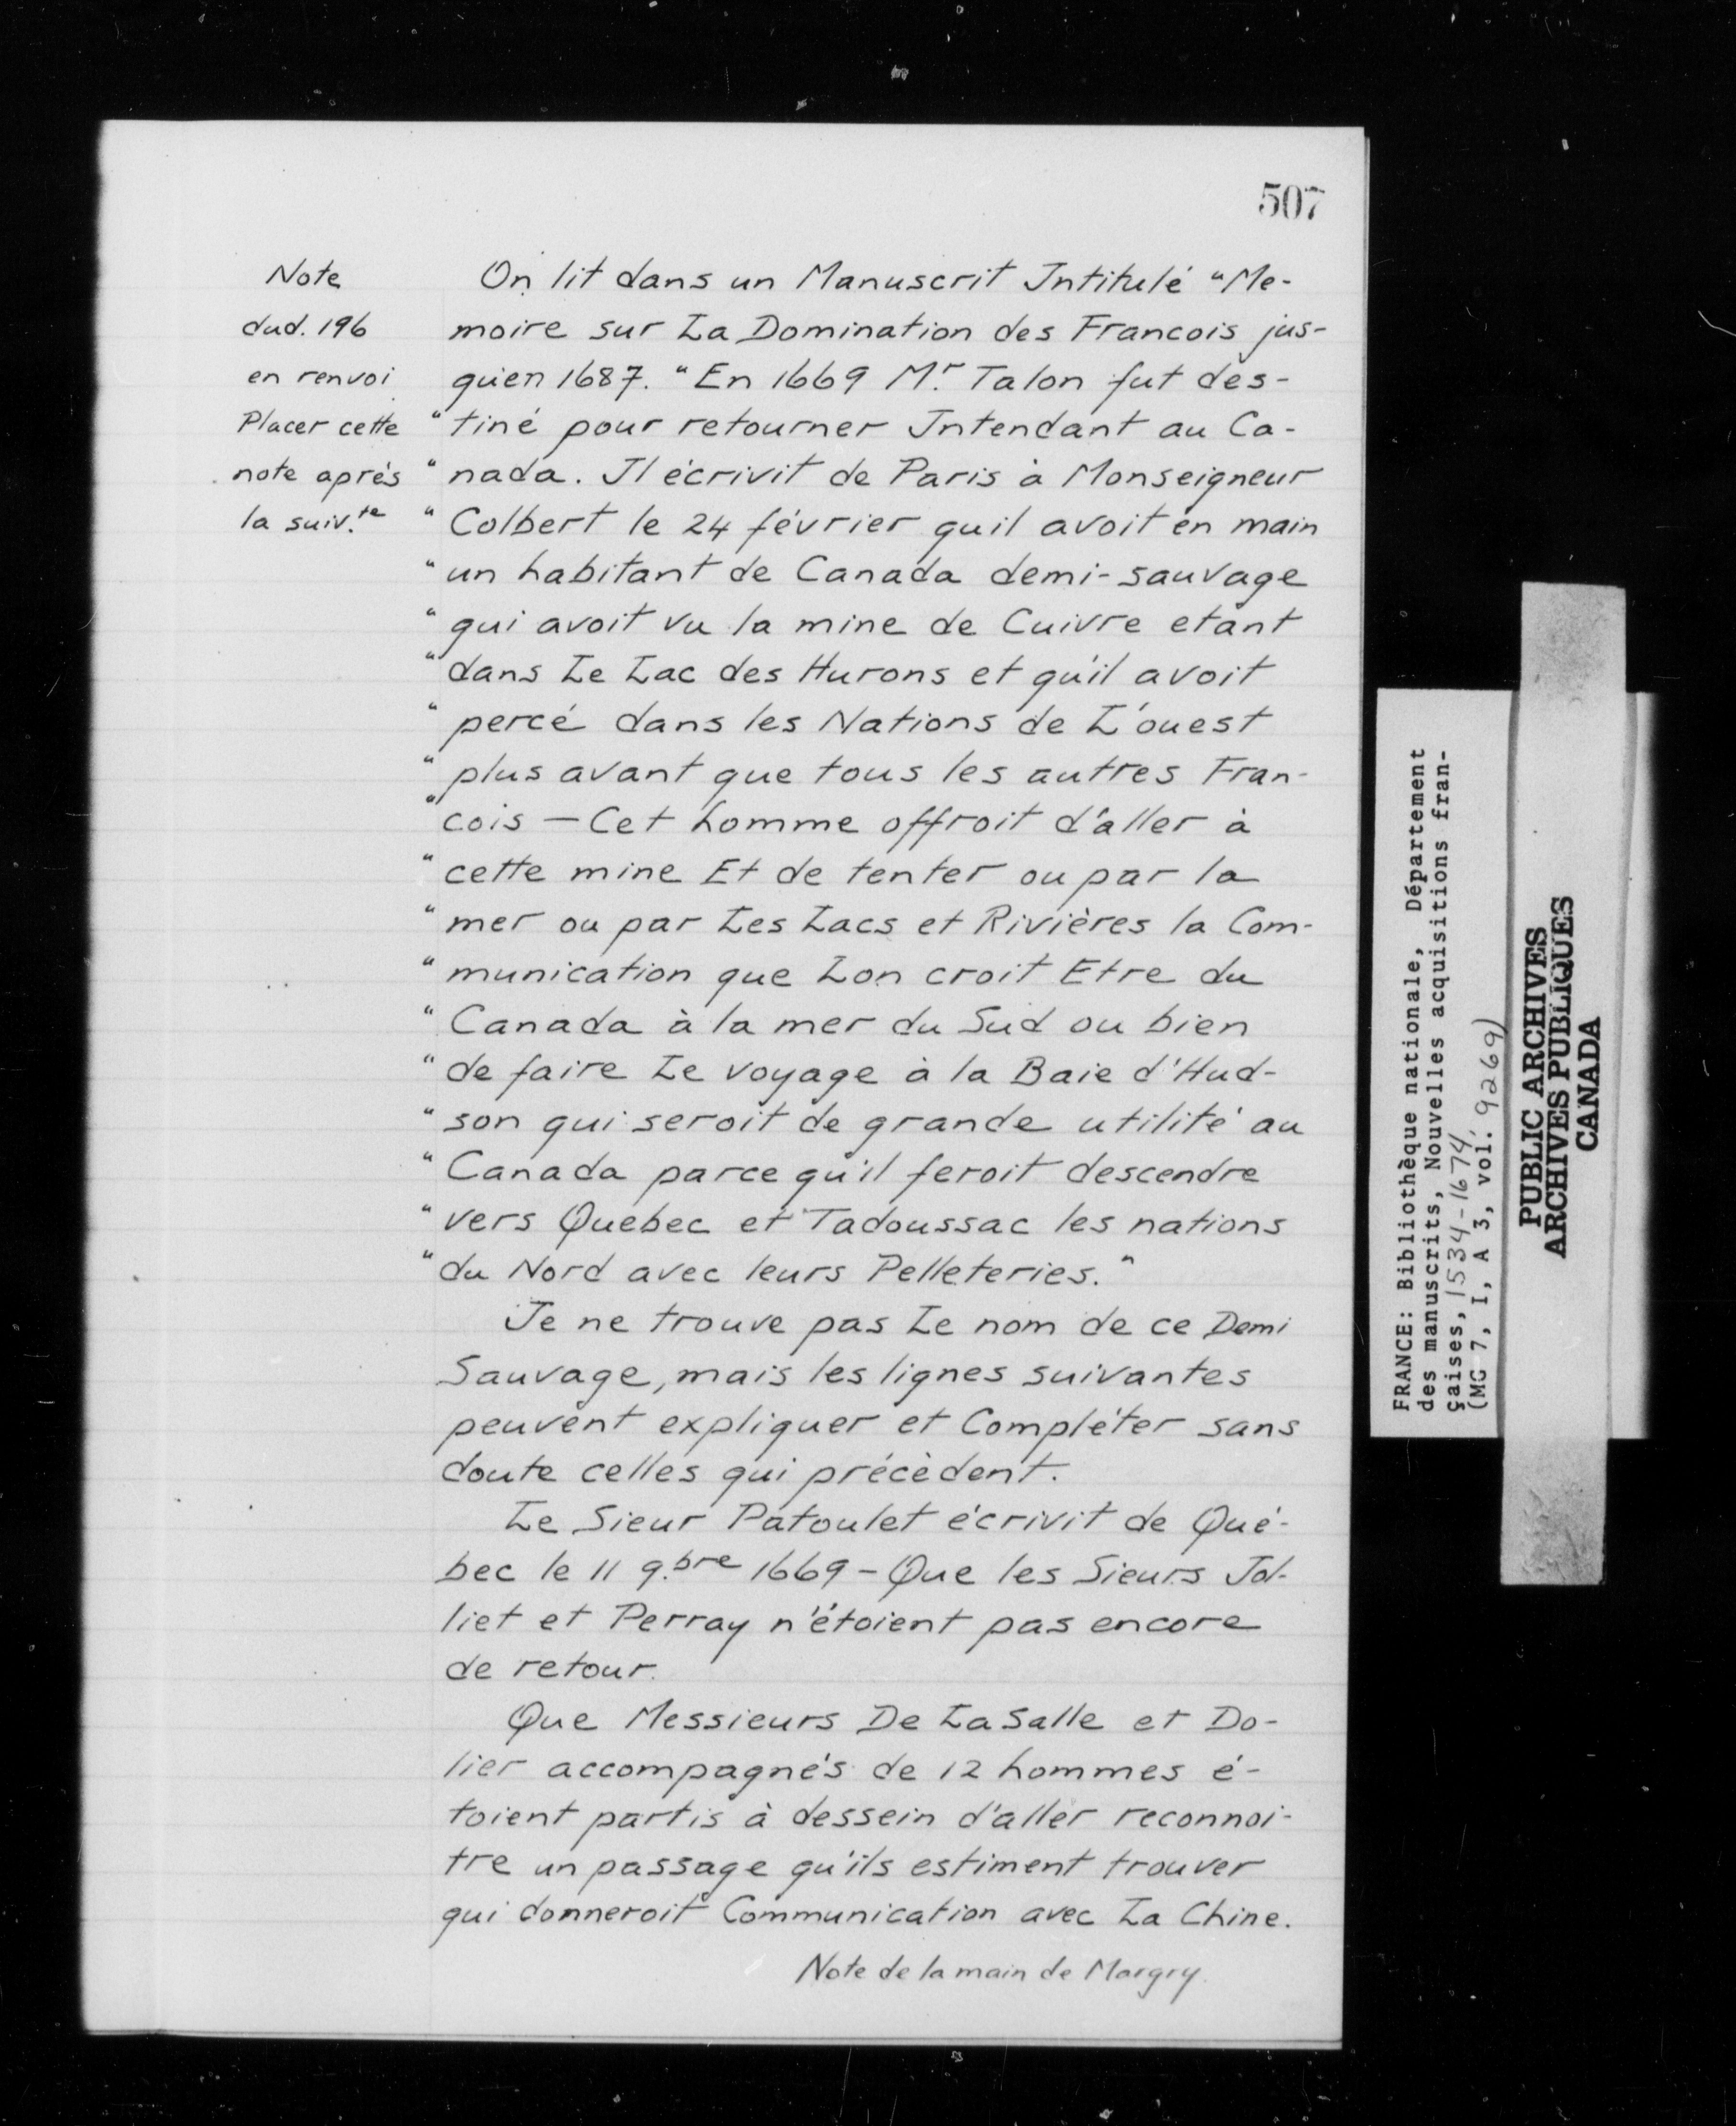 507
Note
dud. 196
en renvoi
Placer cette
note après
la suiv.te
On lit dans un Manuscrit Intitulé "Me-
moire sur La Domination des Francois jus-
qu'en 1687. "En 1669 Mr. Talon fut des-
"tiné pour retourner Intendant au Ca-
"nada. Il écrivit de Paris à Monseigneur
"Colbert le 24 février qu'il avoit en main
"un habitant de Canada demi-sauvage
"qui avoit vu la mine de Cuivre etant
"dans Le Lac des Hurons et qu'il avoit
"percé dans les Nations de L'ouest
"plus avant que tous les autres Fran-
"cois — Cet homme offroit d'aller à
"cette mine Et de tenter ou par la
"mer ou par Les Lacs et Rivières la Com-
"munication que Lon croit Etre du
"Canada à la mer du Sud ou bien
"de faire Le voyage à la Baie d'Hud-
"son qui seroit de grande utilité au
"Canada parce qu'il feroit descendre
"vers Quebec et Tadoussac les nations
"du Nord avec leurs Pelleteries."
Je ne trouve pas Le nom de ce Demi
Sauvage, mais les lignes suivantes
peuvent expliquer et Compléter sans
doute celles qui précèdent.
Le Sieur Patoulet écrivit de Qué-
bec le 11 9.bre 1669 - Que les Sieurs Jol-
liet et Perray n'étoient pas encore
de retour.
Que Messieurs De La Salle et Do-
lier accompagnés de 12 hommes é-
toient partis à dessein d'aller reconnoi-
tre un passage qu'ils estiment trouver
qui donneroit Communication avec La Chine.
Note de la main de Margry.
FRANCE: Bibliothèque nationale, Département
des manuscrits, Nouvelles acquisitions fran-
çaises, 1534-1674
(MG 7, I, A 3, vol. 9269)
PUBLIC ARCHIVES
ARCHIVES PUBLIQUES
CANADA